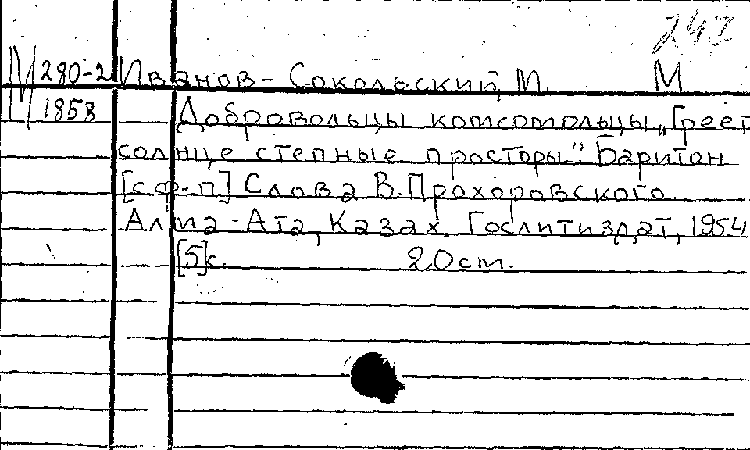 247
М 280-2 Иванов-Сокольский, М. М
1858 Добровольцы комсомольцы „Греет
солнце степные просторы" Баритон
[с ф-п] Слова В. Прохоровского
Алма-Ата, Казах. Гослитиздат, 1954
[5]с. 20 см.